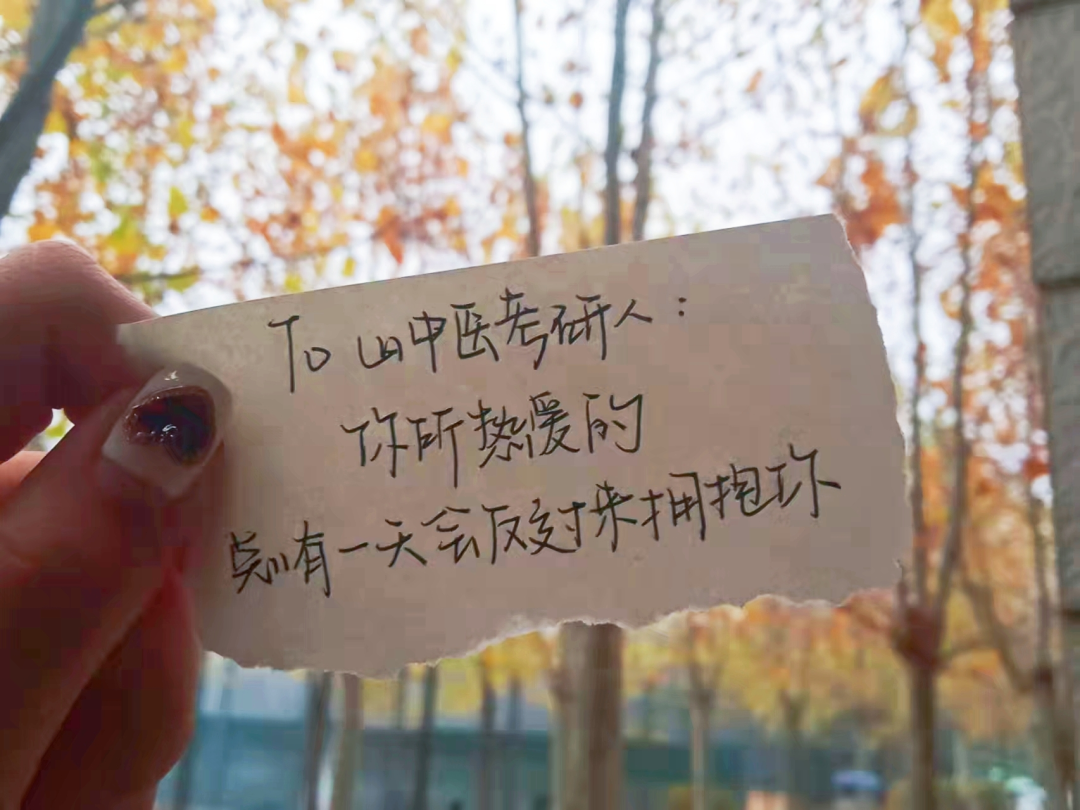 To 山中医考研人：
你所热爱的
总有一天会反过来拥抱你